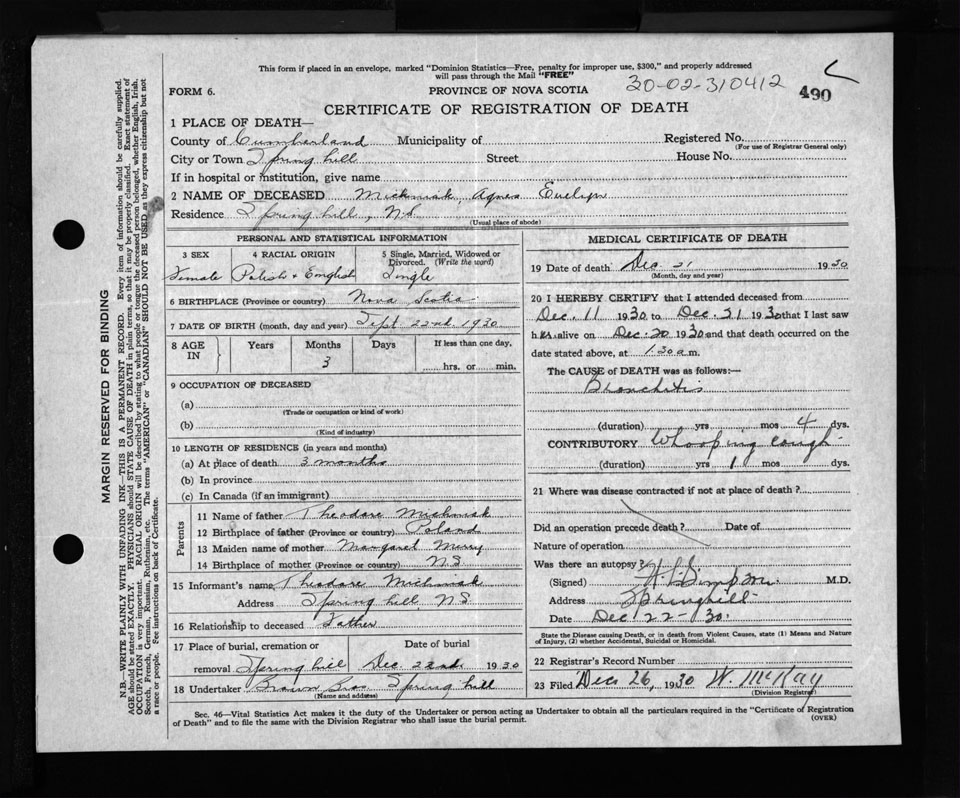 This form if placed in an envelope, marked "Dominion Statistics—Free, penalty for improper use, $300," and properly addressed
will pass through the Mail "FREE"
30-02-310412
490
FORM 6.
PROVINCE OF NOVA SCOTIA
CERTIFICATE OF REGISTRATION OF DEATH
1 PLACE OF DEATH—
County of Cumberland Municipality of Registered No.
(For use of Registrar General only)
City or Town Spring hill Street House No.
If in hospital or institution, give name
2 NAME OF DECEASED Michniak Agnes Evelyn
Residence Spring hill, N.S.
(Usual place of abode)
PERSONAL AND STATISTICAL INFORMATION
3 SEX 4 RACIAL ORIGIN 5 Single, Married, Widowed or Divorced. (Write the word)
Female Polish & English Single
6 BIRTHPLACE (Province or country) Nova Scotia
7 DATE OF BIRTH (month, day and year) Sept 22nd 1930
8 AGE IN Years Months Days If less than one day,
3 hrs. or min.
9 OCCUPATION OF DECEASED
(a)
(Trade or occupation or kind of work)
(b)
(Kind of industry)
10 LENGTH OF RESIDENCE (in years and months)
(a) At place of death 3 months
(b) In province
(c) In Canada (if an immigrant)
Parents
11 Name of father Theodore Michniak
12 Birthplace of father (Province or country) Poland
13 Maiden name of mother Margaret Merry
14 Birthplace of mother (Province or country) N.S.
15 Informant's name Theodore Michniak
Address Spring hill, N.S
16 Relationship to deceased Father
17 Place of burial, cremation or Date of burial
removal Spring hill Dec 22nd 1930
18 Undertaker Brown Bros. Spring hill
(Name and address)
MEDICAL CERTIFICATE OF DEATH
19 Date of death Dec 21 1930
(Month, day and year)
20 I HEREBY CERTIFY that I attended deceased from
Dec. 11 1930 to Dec. 21 1930 that I last saw
h er alive on Dec. 20 1930 and that death occurred on
date stated above, at 1.30 a.m.
The CAUSE of DEATH was as follows:—
Bronchitis
(duration) yrs mos 4 dys.
CONTRIBUTORY Whooping cough
(duration) yrs 1 mos dys.
21 Where was disease contracted if not at place of death?
Did an operation precede death? Date of
Nature of operation
Was there an autopsy?
(Signed) M.D.
Address Springhill
Date Dec 22 - 30.
State the Disease causing Death, or in death from Violent Causes, state (1) Means and Nature
of Injury, (2) whether Accidental, Suicidal or Homicidal.
22 Registrar's Record Number
23 Filed Dec 26, 1930 W. McKay
(Division Registrar)
Sec. 46—Vital Statistics Act makes it the duty of the Undertaker or person acting as Undertaker to obtain all the particulars required in the "Certificate of Registration
of Death" and to file the same with the Division Registrar who shall issue the burial permit.
(OVER)
MARGIN RESERVED FOR BINDING
N.B. WRITE PLAINLY WITH UNFADING INK—THIS IS A PERMANENT RECORD. Every item of information should be carefully supplied.
AGE should be stated EXACTLY. PHYSICIANS should STATE CAUSE OF DEATH in plain terms, so that it may be properly classified. Exact statement of
OCCUPATION is very important. RACIAL ORIGIN will be described by stating to what people or tongue the deceased person belonged, whether English, Irish,
Scotch, French, German, Russian, Ruthenian, etc. The terms "AMERICAN" or "CANADIAN" SHOULD NOT BE USED as they express citizenship but not
a race or people. See instructions on back of Certificate.